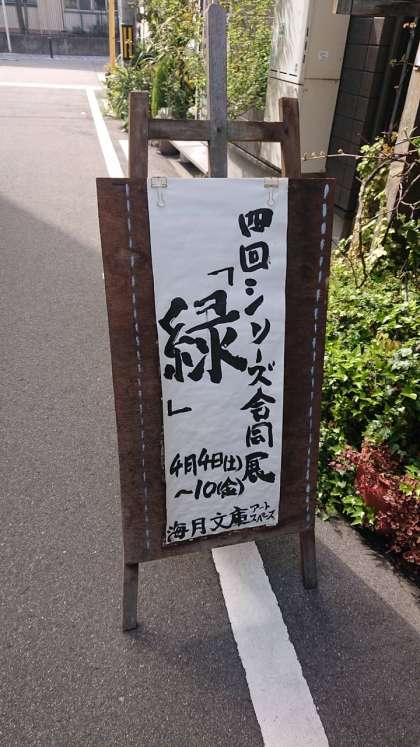 四回シリーズ合同展
「緑」
4月4日(土)
～10(金)
海月文庫アートスペース